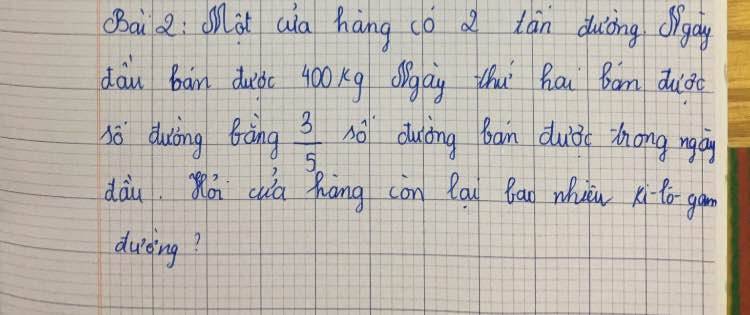 Bài 2: Một cửa hàng có 2 tấn đường. Ngày
đầu bán được 400 kg Ngày thứ hai bán được
số đường bằng 3/5 số đường bán được trong ngày
đầu. Hỏi cửa hàng còn lại bao nhiêu ki-lô-gam
đường?